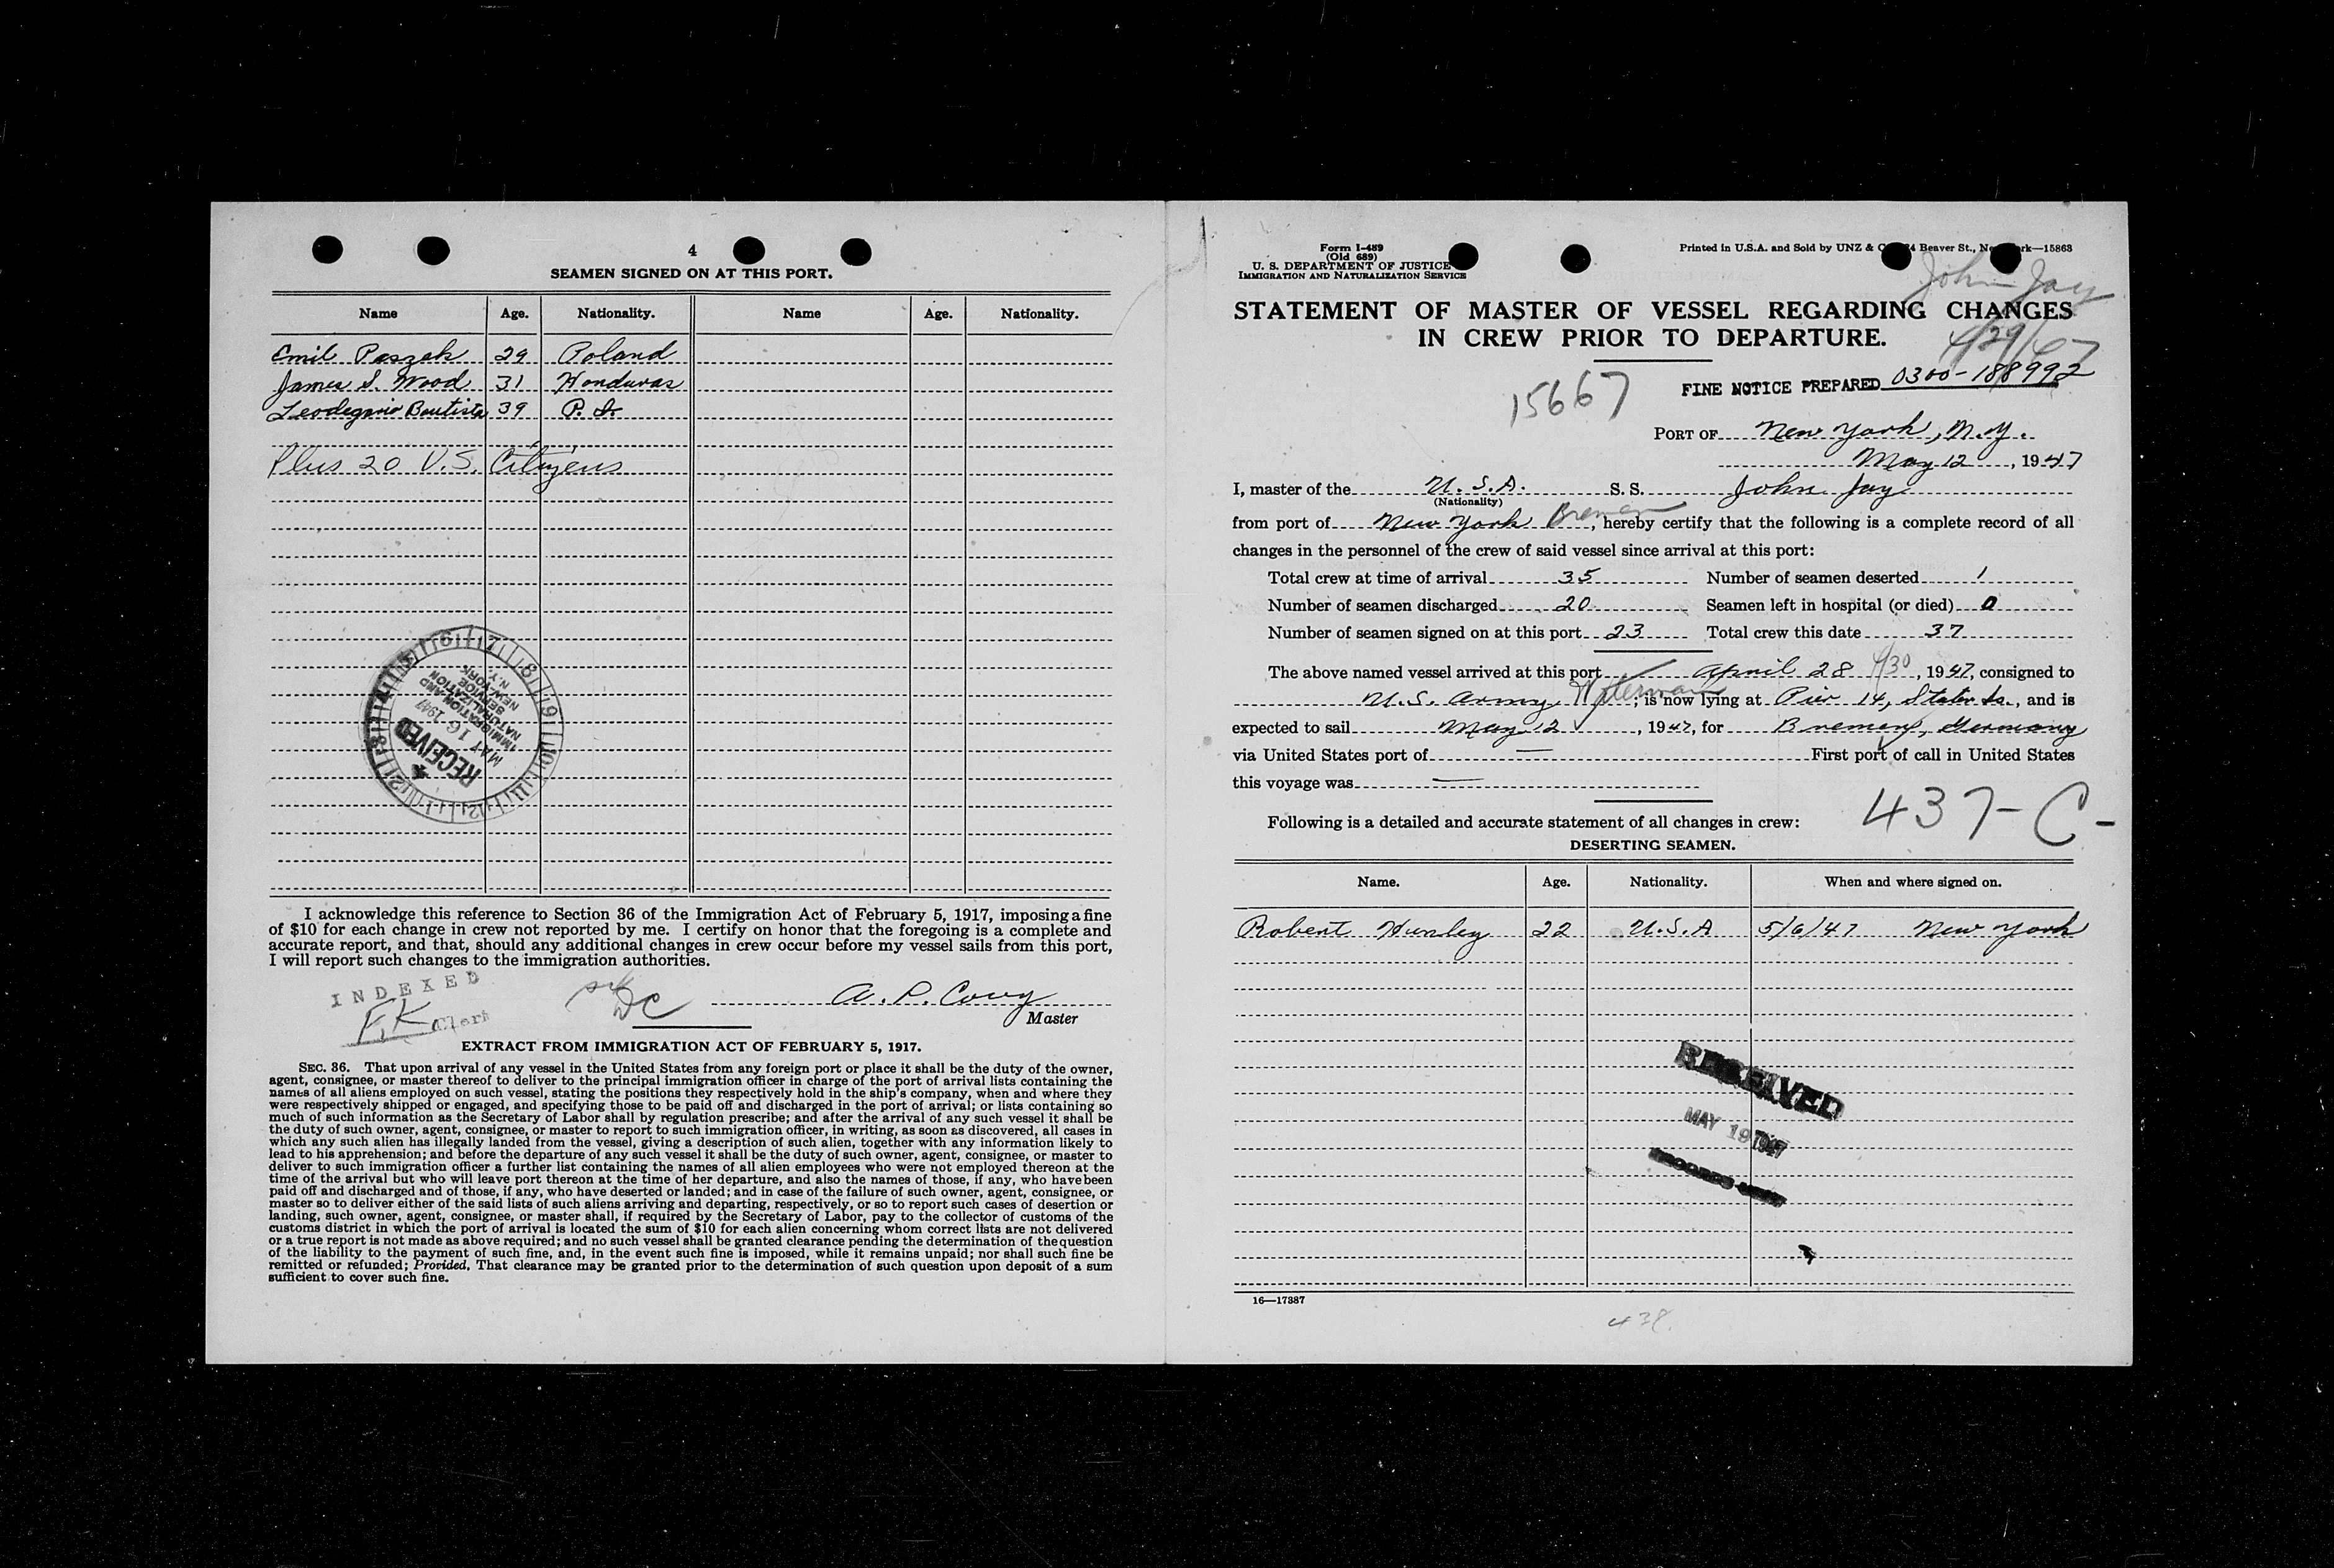 4
SEAMEN SIGNED ON AT THIS PORT.
Name Age. Nationality. Name Age. Nationality.
Emil Paszek 29 Poland
James S. Wood 31 Honduras
Leodegario Bautista 39 P. I.
Plus 20 U.S. Citizens
RECEIVED
MAY 16 1947
IMMIGRATION AND
NATURALIZATION
SERVICE
NEW YORK
N.Y.
I acknowledge this reference to Section 36 of the Immigration Act of February 5, 1917, imposing a fine
of $10 for each change in crew not reported by me. I certify on honor that the foregoing is a complete and
accurate report, and that, should any additional changes in crew occur before my vessel sails from this port,
I will report such changes to the immigration authorities.
INDEXED
F.K. Clerk
DC
Master
EXTRACT FROM IMMIGRATION ACT OF FEBRUARY 5, 1917.
SEC. 36. That upon arrival of any vessel in the United States from any foreign port or place it shall be the duty of the owner,
agent, consignee, or master thereof to deliver to the principal immigration officer in charge of the port of arrival lists containing the
names of all aliens employed on such vessel, stating the positions they respectively hold in the ship's company, when and where they
were respectively shipped or engaged, and specifying those to be paid off and discharged in the port of arrival; or lists containing so
much of such information as the Secretary of Labor shall by regulation prescribe; and after the arrival of any such vessel it shall be
the duty of such owner, agent, consignee, or master to report to such immigration officer, in writing, as soon as discovered, all cases in
which any such alien has illegally landed from the vessel, giving a description of such alien, together with any information likely to
lead to his apprehension; and before the departure of any such vessel it shall be the duty of such owner, agent, consignee, or master to
deliver to such immigration officer a further list containing the names of all alien employees who were not employed thereon at the
time of the arrival but who will leave port thereon at the time of her departure, and also the names of those, if any, who have been
paid off and discharged and of those, if any, who have deserted or landed; and in case of the failure of such owner, agent, consignee, or
master so to deliver either of the said lists of such aliens arriving and departing, respectively, or so to report such cases of desertion or
landing, such owner, agent, consignee, or master shall, if required by the Secretary of Labor, pay to the collector of customs of the
customs district in which the port of arrival is located the sum of $10 for each alien concerning whom correct lists are not delivered
or a true report is not made as above required; and no such vessel shall be granted clearance pending the determination of the question
of the liability to the payment of such fine, and, in the event such fine is imposed, while it remains unpaid; nor shall such fine be
remitted or refunded; Provided, That clearance may be granted prior to the determination of such question upon deposit of a sum
sufficient to cover such fine.
Form I-489
(Old 689)
U. S. DEPARTMENT OF JUSTICE
IMMIGRATION AND NATURALIZATION SERVICE
Printed in U.S.A. and Sold by UNZ & Beaver St., —15863
John Jay
STATEMENT OF MASTER OF VESSEL REGARDING CHANGES
IN CREW PRIOR TO DEPARTURE.
4/29/47
15667
FINE NOTICE PREPARED 0300-188992
PORT OF New York, N.Y.
May 12, 1947
I, master of the U.S.A. S. S. John Jay
(Nationality)
from port of New York Bremen, hereby certify that the following is a complete record of all
changes in the personnel of the crew of said vessel since arrival at this port:
Total crew at time of arrival 35 Number of seamen deserted 1
Number of seamen discharged 20 Seamen left in hospital (or died) 0
Number of seamen signed on at this port 23 Total crew this date 37
The above named vessel arrived at this port April 28 4/30, 1947, consigned to
U.S. Army Waterman; is now lying at Pier 14, Staten Is., and is
expected to sail May 12, 1947, for Bremen, Germany
via United States port of First port of call in United States
this voyage was
437-C-
Following is a detailed and accurate statement of all changes in crew:
DESERTING SEAMEN.
Name. Age. Nationality. When and where signed on.
Robert Hunley 22 U.S.A 5/6/47 New York
RECEIVED
MAY 19 1947
16—17387
438